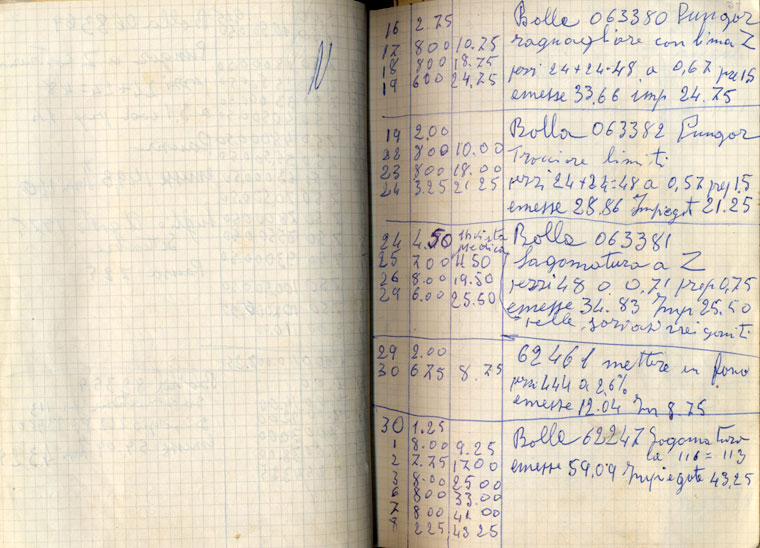 16 2.75
17 800 10.75
18 800 18.75
19 600 24,75
Bolla 063380 Pungor
ragnagliare con lima Z
pezzi 24+24=48 a 0,67 pre 15
emesse 33,66 imp 24.75
19 2.00
22 800 10.00
23 800 18.00
24 3.25 21 25
Bolla 063382 Pungor
Tracciare limiti
pezzi 24+24=48 a 0,57 prep 15
emesse 28,86 Impiegat 21.25
24 4.50 visita medica
25 700 11 50
26 8.00 19.50
29 6.00 25.50
Bolla 063381
Sagomatura a Z
pezzi 48 a 0,71 prep 0,75
emesse 34.83 Imp 25.50
29 2.00
30 675 8.75
62461 mettere in
pezzi 444 a 2,6%
emesse 12.04 Im 8 75
30 1.25
1 8.00 9.25
2 7.75 17.00
3 8.00 25 00
6 800 33.00
7 800 41 00
8 225 43 25
Bolla 62247 Sagomatura
la 116 = 113
emesse 59,09 Impiegate 43,25